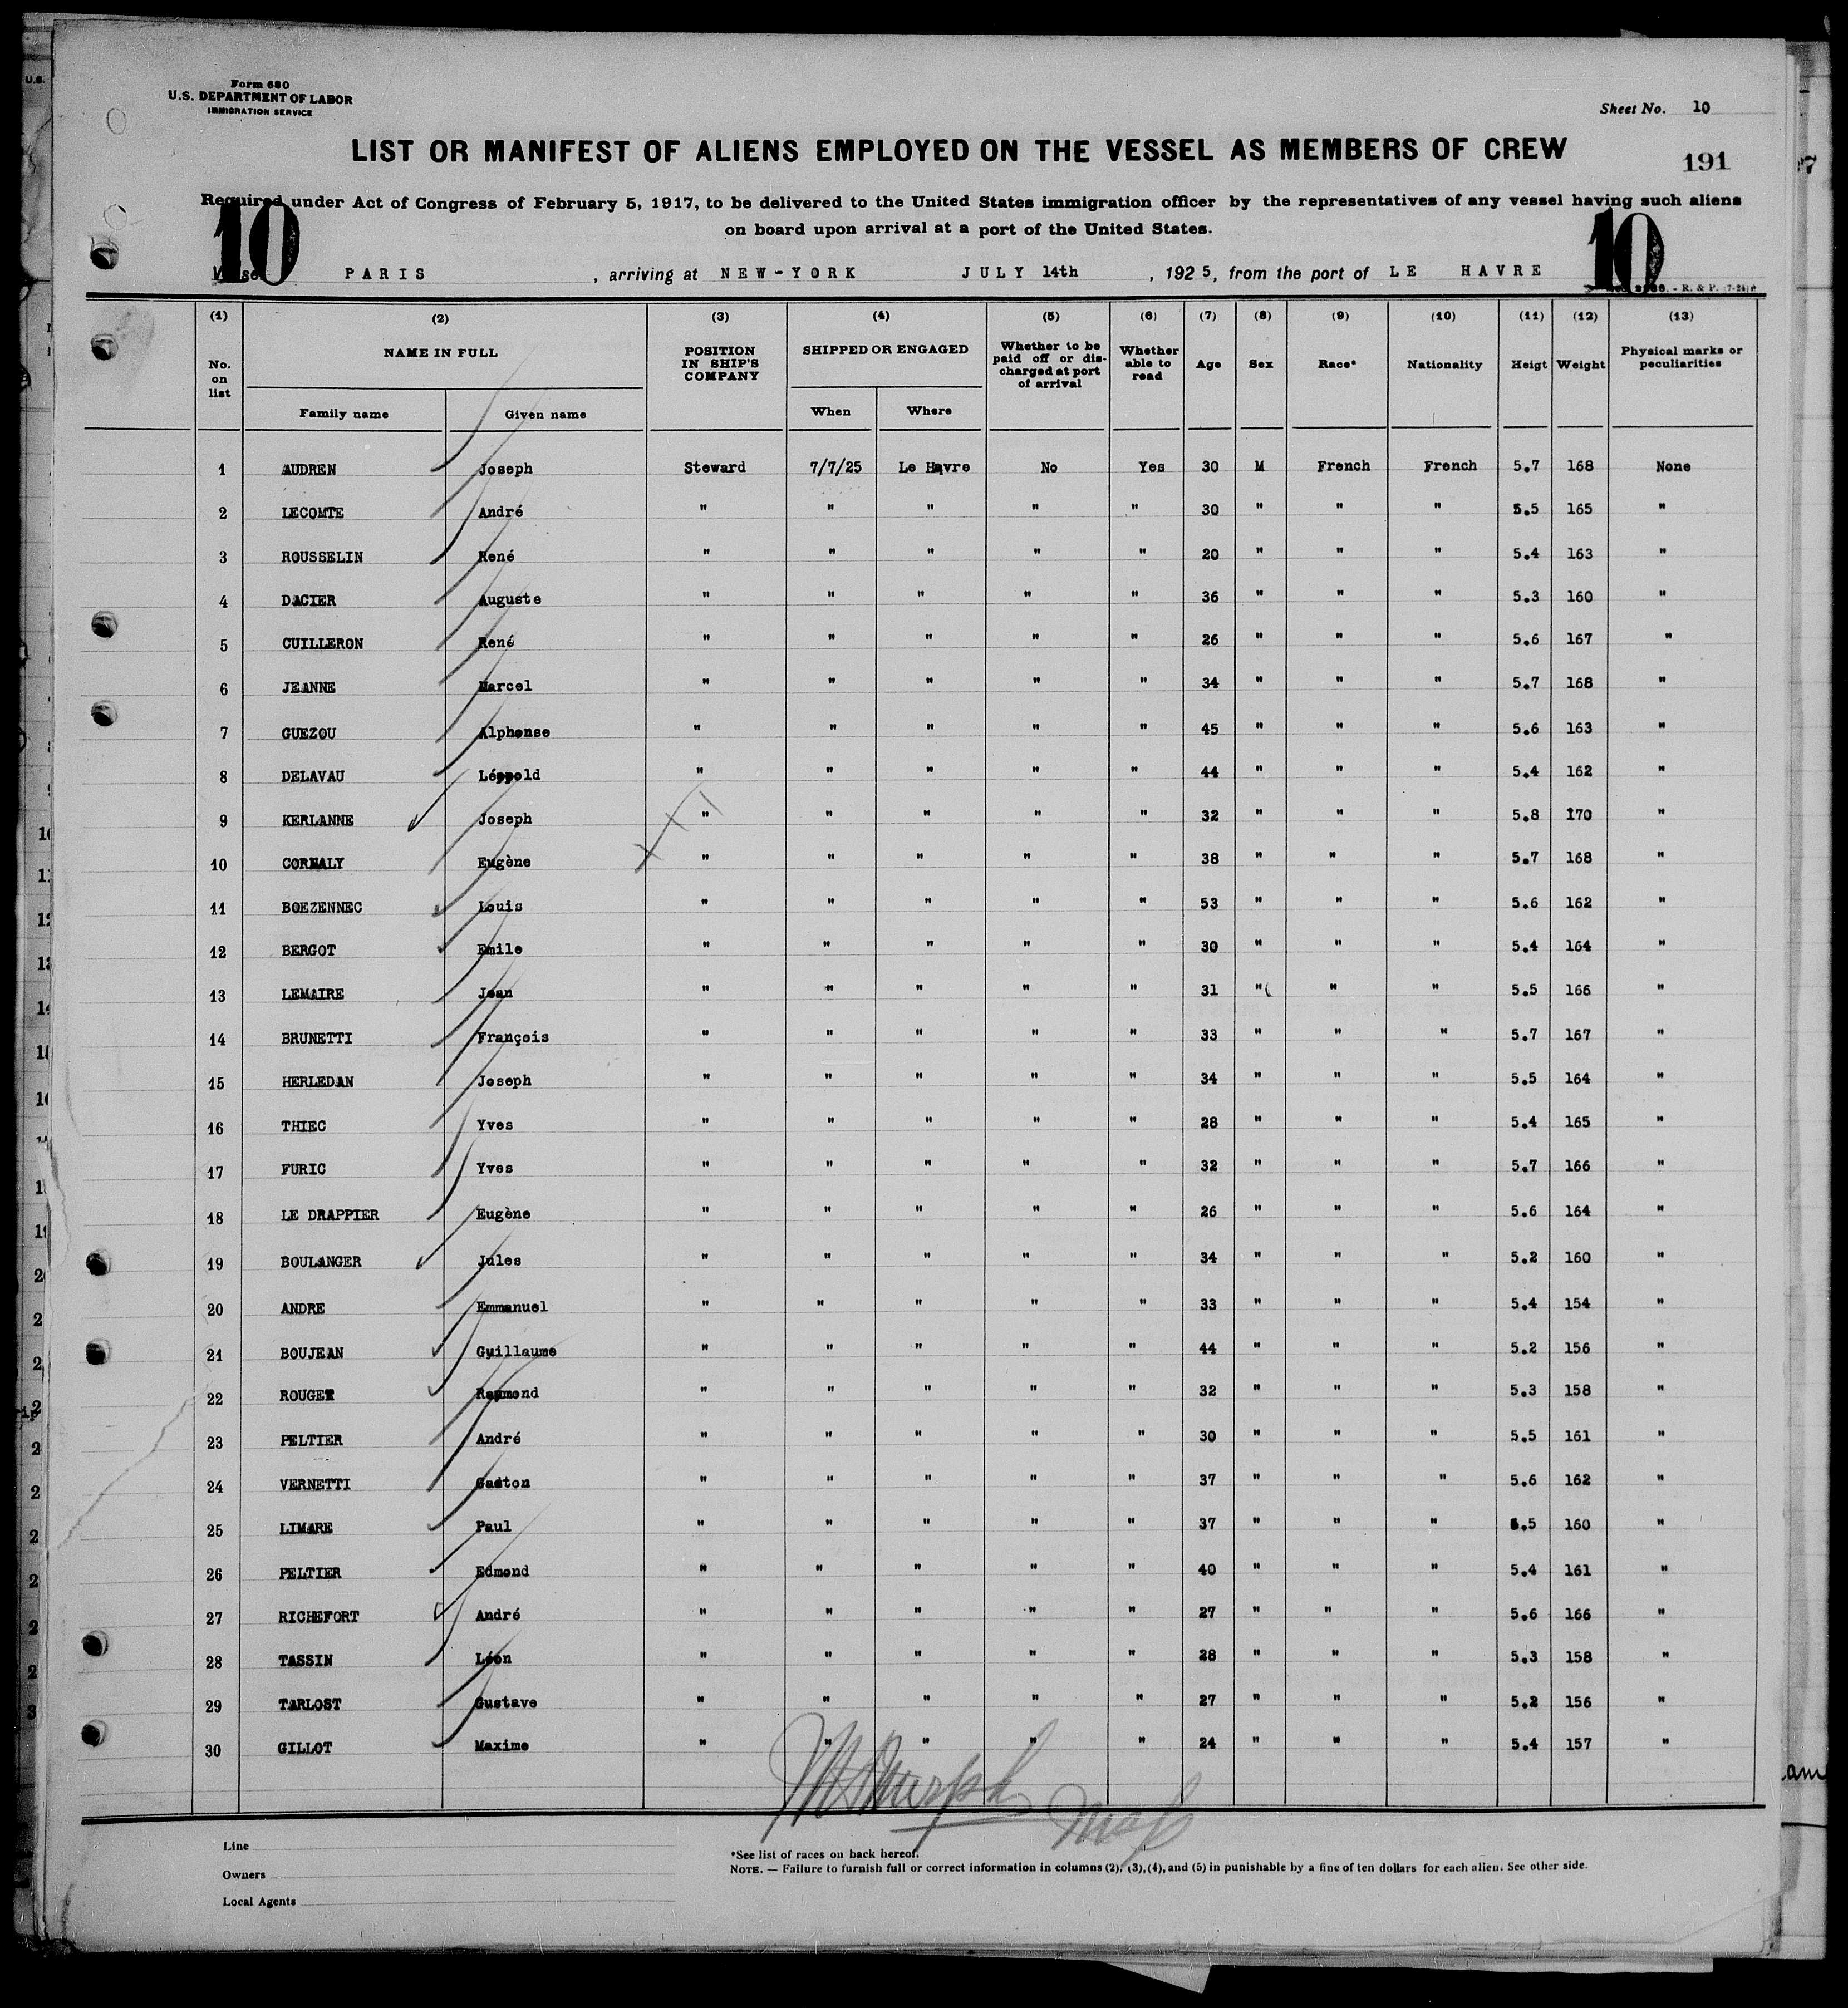 Form 680
U.S. DEPARTMENT OF LABOR
IMMIGRATION SERVICE
Sheet No. 10
LIST OR MANIFEST OF ALIENS EMPLOYED ON THE VESSEL AS MEMBERS OF CREW
191
Required under Act of Congress of February 5, 1917, to be delivered to the United States immigration officer by the representatives of any vessel having such aliens
on board upon arrival at a port of the United States.
10 10
Vessel PARIS , arriving at NEW-YORK JULY 14th , 1925, from the port of LE HAVRE
- R. & P. (7-24)
(1) (2) (3) (4) (5) (6) (7) (8) (9) (10) (11) (12) (13)
No. on list NAME IN FULL POSITION IN SHIP'S COMPANY SHIPPED OR ENGAGED Whether to be paid off or discharged at port of arrival Whether able to read Age Sex Race* Nationality Heigt Weight Physical marks or peculiarities
Family name Given name When Where
1 AUDREN Joseph Steward 7/7/25 Le Havre No Yes 30 M French French 5.7 168 None
2 LECOMTE André " " " " " 30 " " " 5.5 165 "
3 ROUSSELIN René " " " " " 20 " " " 5.4 163 "
4 DACIER Auguste " " " " " 36 " " " 5.3 160 "
5 CUILLERON René " " " " " 26 " " " 5.6 167 "
6 JEANNE Marcel " " " " " 34 " " " 5.7 168 "
7 GUEZOU Alphonse " " " " " 45 " " " 5.6 163 "
8 DELAVAU Léopold " " " " " 44 " " " 5.4 162 "
9 KERLANNE Joseph " " " " " 32 " " " 5.8 170 "
10 CORNALY Eugène " " " " " 38 " " " 5.7 168 "
11 BOEZENNEC Louis " " " " " 53 " " " 5.6 162 "
12 BERGOT Emile " " " " " 30 " " " 5.4 164 "
13 LEMAIRE Jean " " " " " 31 " " " 5.5 166 "
14 BRUNETTI François " " " " " 33 " " " 5.7 167 "
15 HERLEDAN Joseph " " " " " 34 " " " 5.5 164 "
16 THIEC Yves " " " " " 28 " " " 5.4 165 "
17 FURIC Yves " " " " " 32 " " " 5.7 166 "
18 LE DRAPPIER Eugène " " " " " 26 " " " 5.6 164 "
19 BOULANGER Jules " " " " " 34 " " " 5.2 160 "
20 ANDRE Emmanuel " " " " " 33 " " " 5.4 154 "
21 BOUJEAN Guillaume " " " " " 44 " " " 5.2 156 "
22 ROUGET Raymond " " " " " 32 " " " 5.3 158 "
23 PELTIER André " " " " " 30 " " " 5.5 161 "
24 VERNETTI Gaston " " " " " 37 " " " 5.6 162 "
25 LIMARE Paul " " " " " 37 " " " 5.5 160 "
26 PELTIER Edmond " " " " " 40 " " " 5.4 161 "
27 RICHEFORT André " " " " " 27 " " " 5.6 166 "
28 TASSIN Léon " " " " " 28 " " " 5.3 158 "
29 TARLOST Gustave " " " " " 27 " " " 5.2 156 "
30 GILLOT Maxime " " " " " 24 " " " 5.4 157 "
Line
Owners
Local Agents
*See list of races on back hereof.
NOTE. — Failure to furnish full or correct information in columns (2), (3), (4), and (5) in punishable by a fine of ten dollars for each alien. See other side.